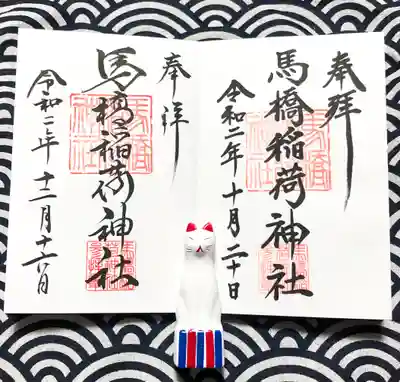 奉拝
馬橋稲荷神社
令和二年十月二十日
奉拝
馬橋稲荷神社
令和二年十二月十六日
馬橋
神社